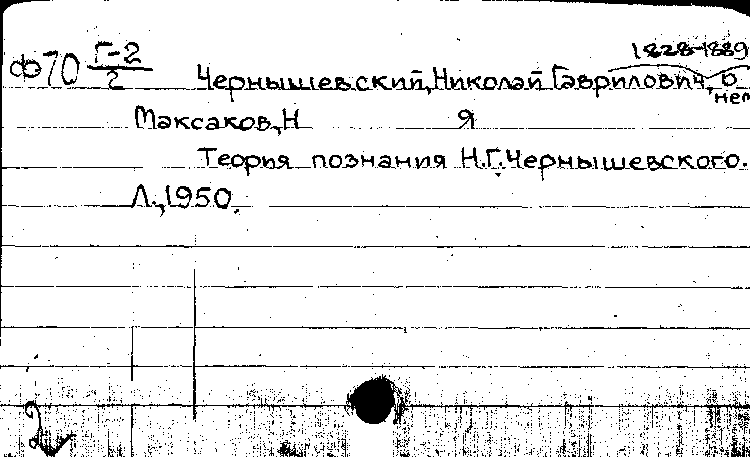 1828-1889
ф70 Г-2/2 Чернышевский, Николай Гаврилович, о нем
Максаков, Н Я
Теория познания Н.Г. Чернышевского.
Л., 1950.
2